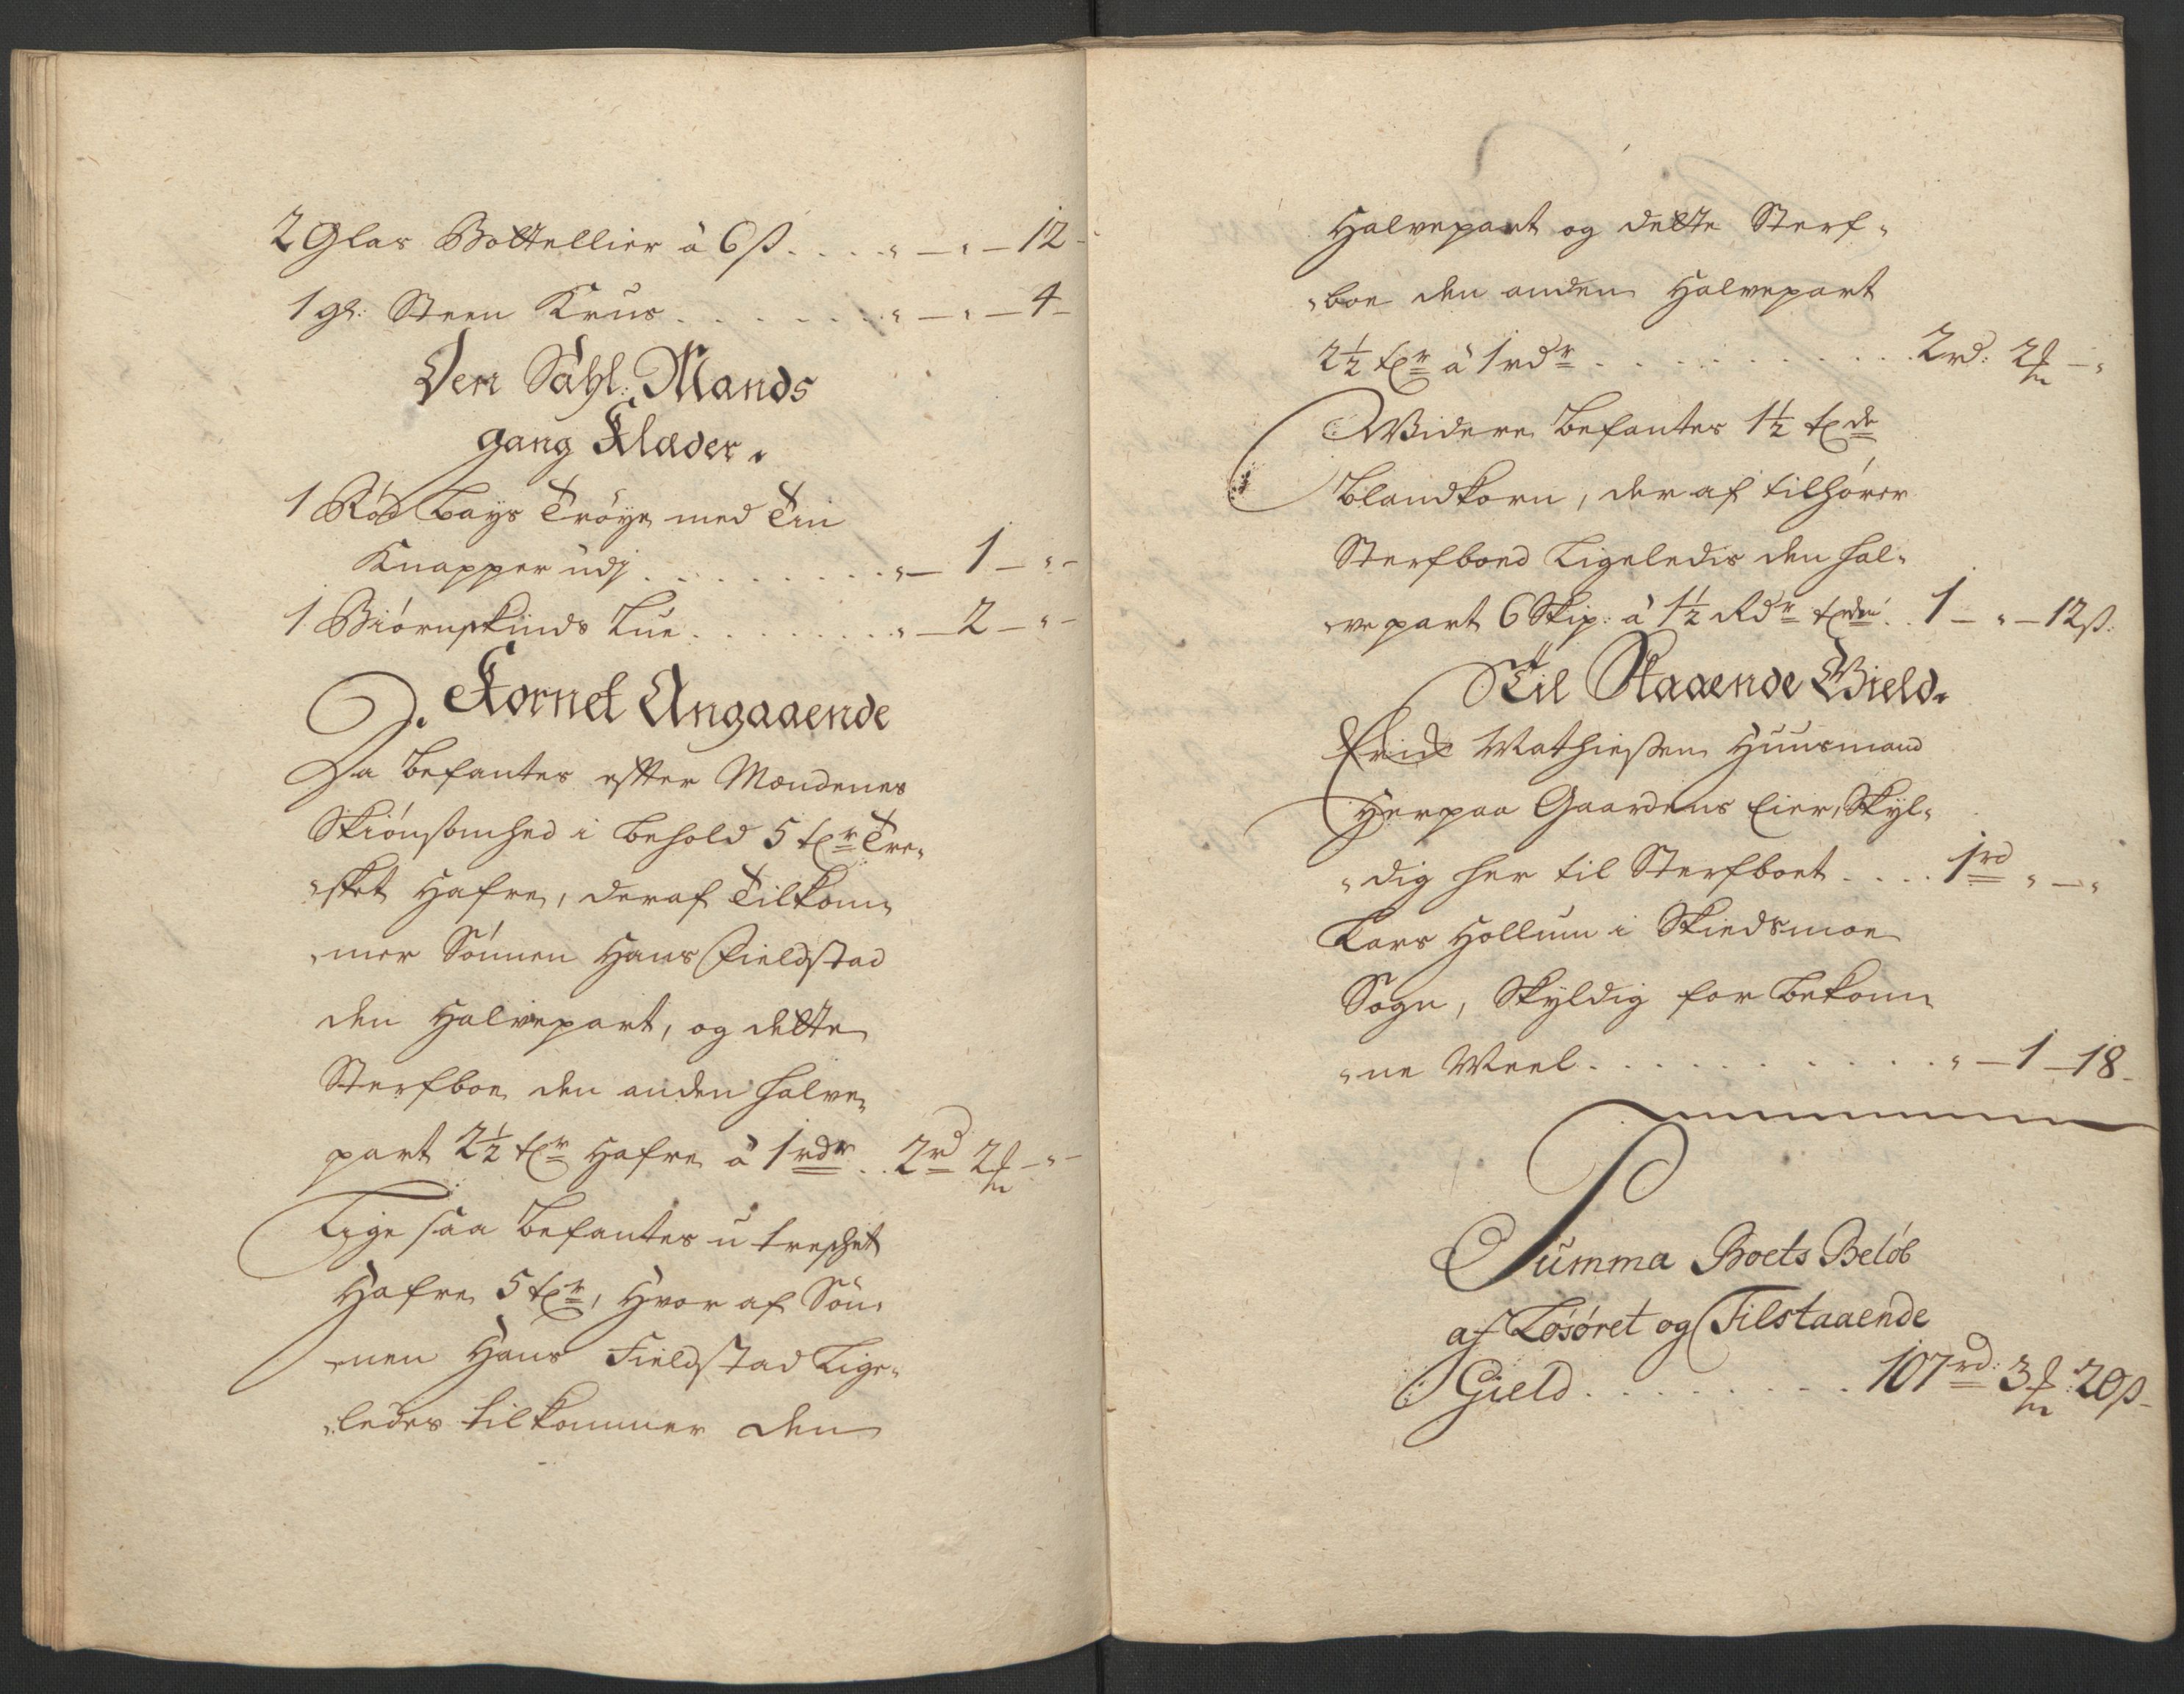 2 Glas Bottellier à 6 ß. . . . „ — „ — 12 -
1 gl: Steen Krus . . . . . . . „ — „ — 4 -
Den Sahl: Mands
gang Klæder.
1 Rød bays Trøye med Tin
Knapper udj . . . . . . . . . „ — 1 — „ -
1 Biørnskinds Lue . . . . . . . . „ — 2 — „ -
Kornet Angaaende
Da befantes efter Mændenes
Skiønsomhed i behold 5 tr Tre„
„sket Hafre, deraf Tilkom„
„mer Sønnen Hans Fieldstad
den Halvepart, og dette
Sterfboe den anden halve„
part 2½ tr Hafre à 1 rdr . . 2 rd 2 m — „ -
Lige saa befantes u treschet
Hafre 5 tr, Hvor af Søn„
„nen Hans Fieldstad Lige„
„ledes tilkommer den
Halvepart og dette Sterf„
„boe den anden Halvepart
2½ tr à 1 rdr . . . . . . . . . . . 2 rd: 2 m — „
Widere befantes 1½ tde
Blandkorn, der af tilhører
Sterfboed Ligeledis den hal„
„vepart 6 Skip: à 1½ Rdr tden . . 1 — „ — 12 ß.
Til Staaende Gield.
Erich Mathiessen Huusmand
Herpaa Gaardens Eier, Skyl„
„dig her til Sterfboet . . . . 1 rd „ — „
Lars Hollum i Skiedsmoe
Sogn, Skyldig for bekom„
„ne Meel . . . . . . . . . . . „ — 1 — 18 -
Summa Boets Beløb
af Løsøret og Tilstaaende
Gield . . . . . . . . . 107 rd: 3 m: 20 ß -